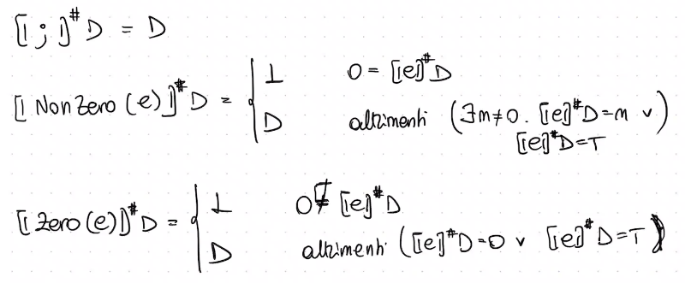 ⟦;⟧# D = D
⟦NonZero(e)⟧# D = { ⊥ 0 = ⟦e⟧# D
D altrimenti (∃m≠0. ⟦e⟧# D=m ∨ )
⟦e⟧# D=T
⟦Zero(e)⟧# D = { ⊥ 0 ⋢ ⟦e⟧# D
D altrimenti (⟦e⟧# D=0 ∨ ⟦e⟧# D=T)